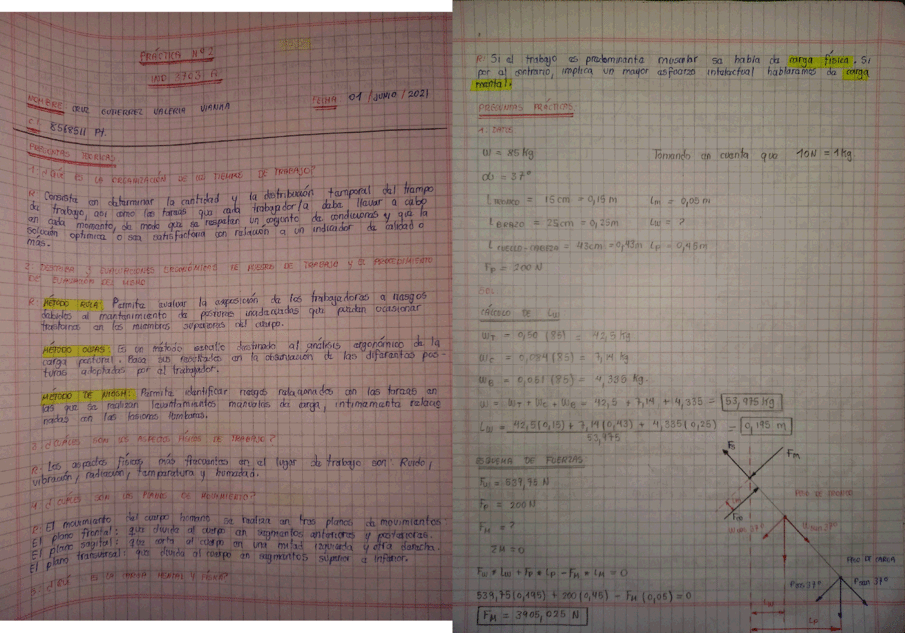 PRÁCTICA Nº2
IND 3703 A
NOMBRE CRUZ GUTIERREZ VALERIA VIANAA
FECHA 01 / JUNIO / 2021
C.I. 8568511 Pt.
PREGUNTAS TEORICAS
1. ¿QUE ES LA ORGANIZACIÓN DE LOS TIEMPOS DE TRABAJO?
R: Consiste en determinar la cantidad y la distribución temporal del tiempo
de trabajo, así como las tareas que cada trabajador/a debe llevar a cabo
en cada momento, de modo que se respetan un conjunto de condiciones y que la
solución optimice o sea satisfactoria con relación a un indicador de calidad o
más.
2. DESCRIBA 3 EVALUACIONES ERGONÓMICAS DE PUESTO DE TRABAJO Y EL PROCEDIMIENTO
DE EVALUACIÓN DEL MISMO
R: MÉTODO RULA: Permite evaluar la exposición de los trabajadores a riesgos
debidos al mantenimiento de posturas inadecuadas que pueden ocasionar
trastornos en los miembros superiores del cuerpo.
MÉTODO OWAS: Es un método sencillo destinado al análisis ergonómico de la
carga postural. Basa sus resultados en la observación de las diferentes pos-
turas adoptadas por el trabajador.
MÉTODO DE NIOSH: Permite identificar riesgos relacionados con las tareas en
las que se realizan levantamientos manuales de carga, íntimamente relacio
nadas con las lesiones lumbares.
3. ¿CUÁLES SON LOS ASPECTOS FÍSICOS DE TRABAJO?
R: Los aspectos físicos más frecuentes en el lugar de trabajo son: Ruido,
vibración, radiación, temperatura y humedad.
4. ¿CUÁLES SON LOS PLANOS DE MOVIMIENTO?
R: El movimiento del cuerpo humano se realiza en tres planos de movimientos:
El plano frontal: que divide al cuerpo en segmentos anteriores y posteriores.
El plano sagital: que corta al cuerpo en una mitad izquierda y otra derecha.
El plano transversal: que divide al cuerpo en segmentos superior e inferior.
5. ¿QUÉ ES LA CARGA MENTAL Y FÍSICA?
R: Si el trabajo es predominante muscular se habla de carga física. Si
por el contrario, implica un mayor esfuerzo intelectual hablaremos de carga
mental.
PREGUNTAS PRÁCTICAS
1. DATOS
W = 85 Kg
Tomando en cuenta que 10N = 1Kg
∞ = 37º
L TRONCO = 15cm = 0,15 m
Lm = 0,05 m
L BRAZO = 25cm = 0,25m
Lw = ?
L CUELLO-CABEZA = 43cm = 0,43m
Lp = 0,45m
Fp = 200 N
SOL.
CÁLCULO DE Lw
WT = 0,50 (85) = 42,5 Kg
WC = 0,084 (85) = 7,14 Kg
WB = 0,051 (85) = 4,335 Kg.
W = WT + WC + WB = 42,5 + 7,14 + 4,335 = 53,975 Kg
Lw = 42,5(0,15) + 7,14(0,43) + 4,335(0,25) / 53,975 = 0,195 m
ESQUEMA DE FUERZAS
Fw = 539,75 N
Fp = 200N
FM = ?
ΣM = 0
Fw * Lw + Fp * Lp - FM * LM = 0
539,75(0,195) + 200(0,45) - FM (0,05) = 0
FM = 3905,025 N
FM
PESO DE TRONCO
Wsen 37º
PESO DE CARGA
Psen 37º
Lw
Lp